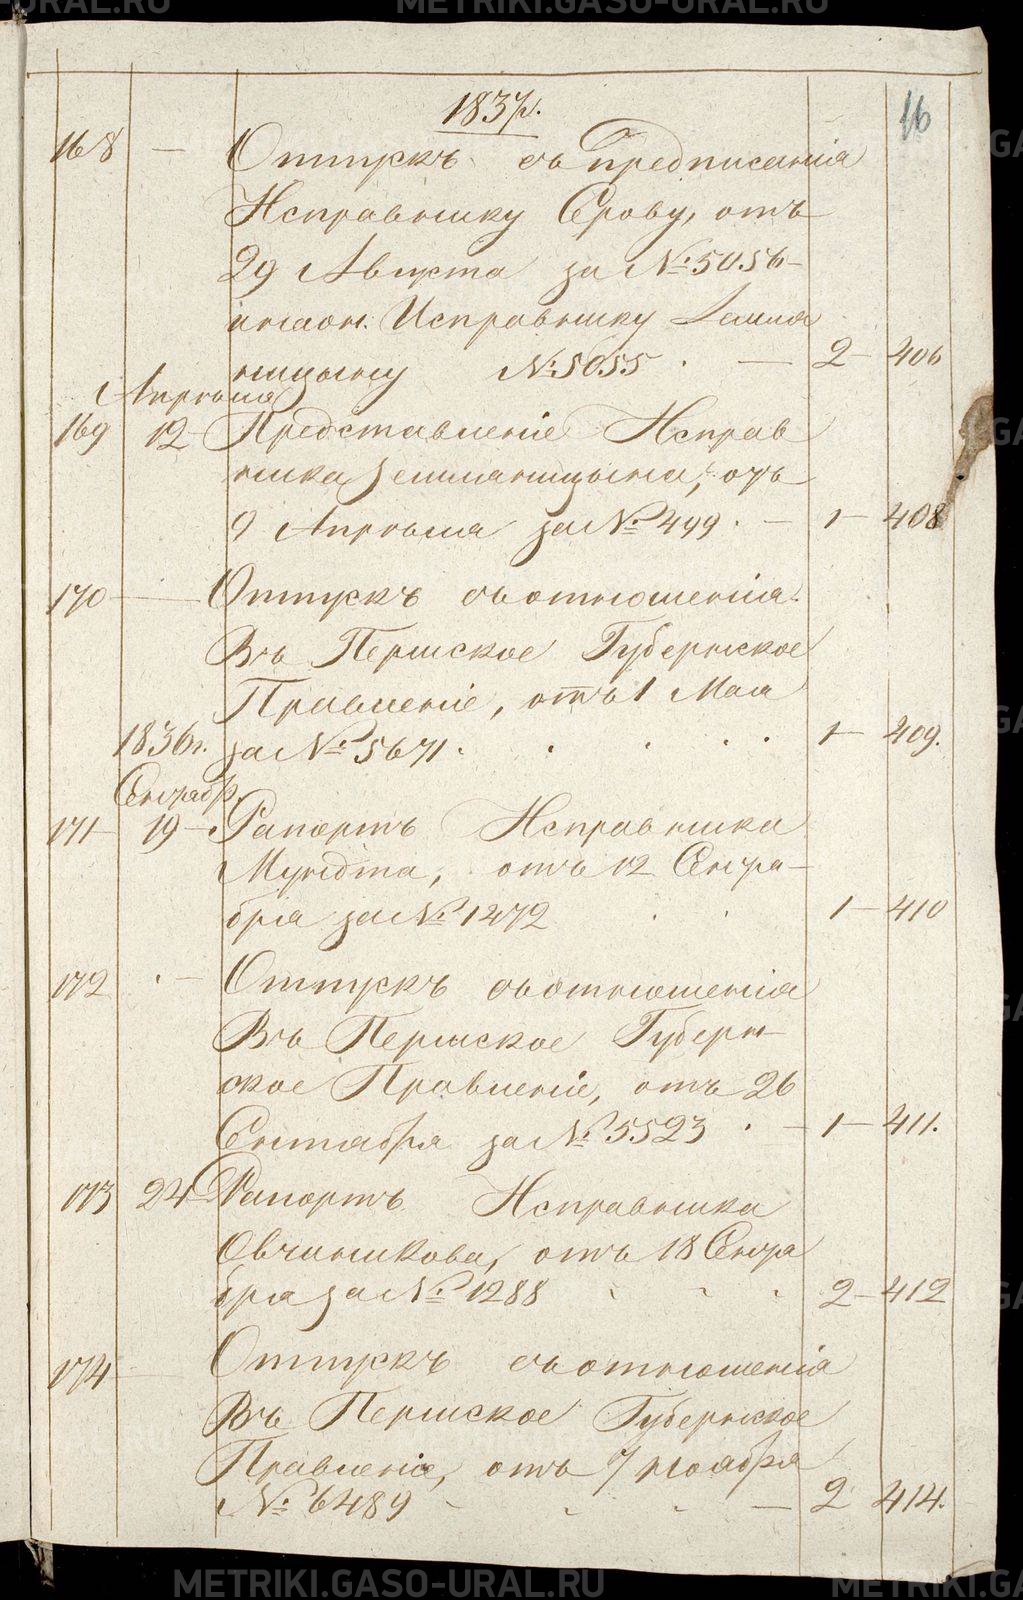 1837г.
16
168 — Отпускъ съ предписанія
Исправнику Серову, отъ
29 Августа за № 5056
и Исправнику Земля
ницыну № 5055 . — 2 — 406
Апрѣля
169 12 Представленіе Исправ
ника Земляницына, отъ
9 Апрѣля за № 499 . — 1 — 408
170 — Отпускъ съ отношенія
Въ Пермское Губернское
Правленіе, отъ 1 Мая
за № 5671 . . . . . 1 — 409.
1836г.
Сентябр.
171 19 Рапортъ Исправника
отъ 12 Сентя-
бря за № 1272 . . 1 — 410
172 . — Отпускъ съ отношенія
Въ Пермское Губерн-
ское Правленіе, отъ 26
Сентября за № 5523 . — 1 — 411.
173 24 Рапортъ Исправника
Овчинникова, отъ 18 Сентя
бря за № 1288 . . . 2 — 412
174 — Отпускъ съ отношенія
Въ Пермское Губернское
Правленіе, отъ 7 ноября
№ 6489 . . . — 2 414.
METRIKI.GASO-URAL.RU